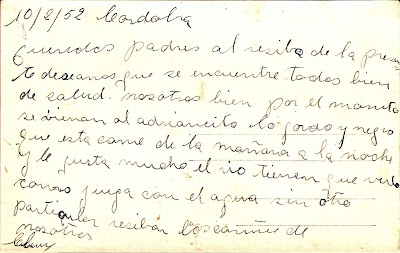 10/2/52 Cordoba
queridos padres al resibo de la presen
te deseamos que se encuentre todos bien
de salud. nosotros bien por el momento
se vieran al adriancito lo gordo y negro
que esta come de la mañana a la noche
y le gusta mucho el rio tienen que verlo
como juega con el agua sin otro
particular resiban los cariños de
nosotros